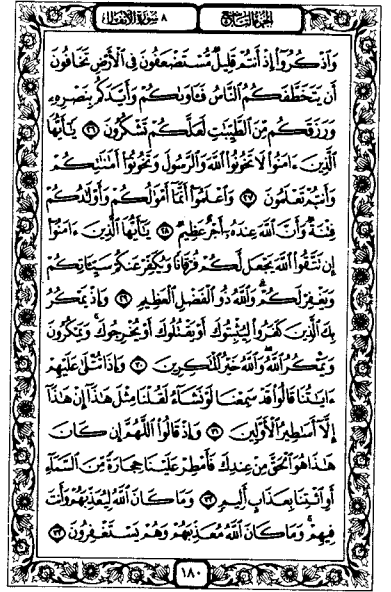 الجزء التاسع ٨ سورة الأنفال
وَاذْكُرُوا إِذْ أَنتُمْ قَلِيلٌ مُّسْتَضْعَفُونَ فِي الْأَرْضِ تَخَافُونَ
أَن يَتَخَطَّفَكُمُ النَّاسُ فَـَٔاوَىٰكُمْ وَأَيَّدَكُم بِنَصْرِهِ
وَرَزَقَكُم مِّنَ الطَّيِّبَـٰتِ لَعَلَّكُمْ تَشْكُرُونَ ٢٦ يَـٰٓأَيُّهَا
الَّذِينَ ءَامَنُوا لَا تَخُونُوا اللَّهَ وَالرَّسُولَ وَتَخُونُوٓا أَمَـٰنَـٰتِكُمْ
وَأَنتُمْ تَعْلَمُونَ ٢٧ وَاعْلَمُوٓا أَنَّمَآ أَمْوَٰلُكُمْ وَأَوْلَـٰدُكُمْ
فِتْنَةٌ وَأَنَّ اللَّهَ عِندَهُۥٓ أَجْرٌ عَظِيمٌ ٢٨ يَـٰٓأَيُّهَا الَّذِينَ ءَامَنُوٓا
إِن تَتَّقُوا اللَّهَ يَجْعَل لَّكُمْ فُرْقَانًا وَيُكَفِّرْ عَنكُمْ سَيِّـَٔاتِكُمْ
وَيَغْفِرْ لَكُمْ وَاللَّهُ ذُو الْفَضْلِ الْعَظِيمِ ٢٩ وَإِذْ يَمْكُرُ
بِكَ الَّذِينَ كَفَرُوا لِيُثْبِتُوكَ أَوْ يَقْتُلُوكَ أَوْ يُخْرِجُوكَ وَيَمْكُرُونَ
وَيَمْكُرُ اللَّهُ وَاللَّهُ خَيْرُ الْمَـٰكِرِينَ ٣٠ وَإِذَا تُتْلَىٰ عَلَيْهِمْ
ءَايَـٰتُنَا قَالُوا قَدْ سَمِعْنَا لَوْ نَشَآءُ لَقُلْنَا مِثْلَ هَـٰذَآ إِنْ هَـٰذَآ
إِلَّآ أَسَـٰطِيرُ الْأَوَّلِينَ ٣١ وَإِذْ قَالُوا اللَّهُمَّ إِن كَانَ
هَـٰذَا هُوَ الْحَقَّ مِنْ عِندِكَ فَأَمْطِرْ عَلَيْنَا حِجَارَةً مِّنَ السَّمَآءِ
أَوِ ائْتِنَا بِعَذَابٍ أَلِيمٍ ٣٢ وَمَا كَانَ اللَّهُ لِيُعَذِّبَهُمْ وَأَنتَ
فِيهِمْ وَمَا كَانَ اللَّهُ مُعَذِّبَهُمْ وَهُمْ يَسْتَغْفِرُونَ ٣٣
١٨٠